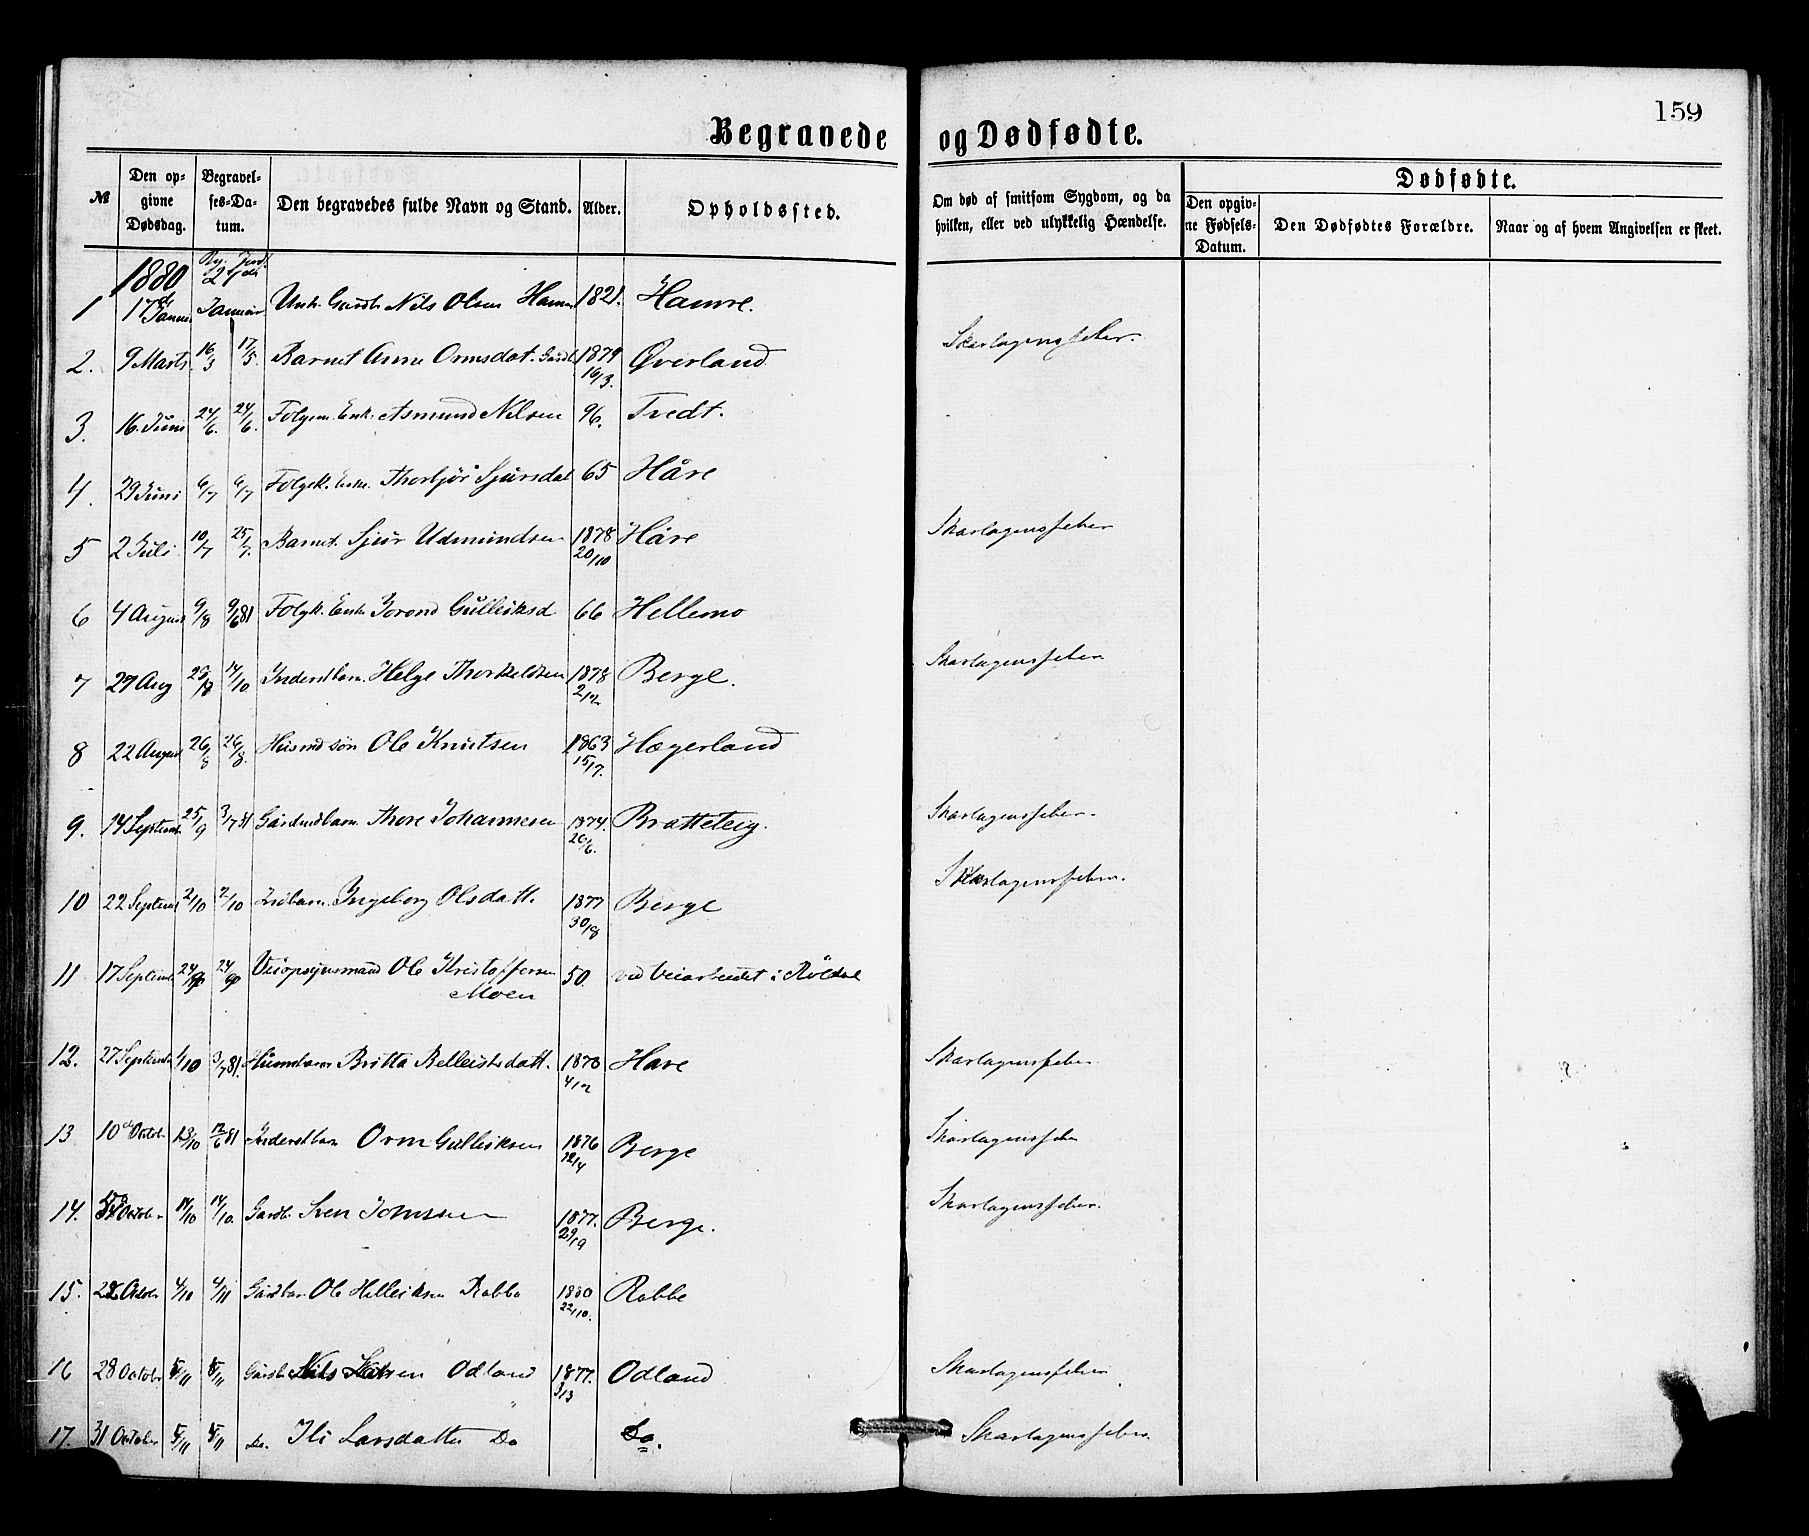 159
Begravede og Dødfødte.
№ Den opgivne Dødsdag. Begravelses-Datum. Den begravedes fulde Navn og Stand. Alder. Opholdssted. Om død af smitsom Sygdom, og da hvilken, eller ved ulykkelig Hændelse. Dødfødte.
Den opgivne Fødsels-Datum. Den Dødfødtes Forældre. Naar og af hvem Angivelsen er skeet.
1880
1 17 Januar Nils Olsen 1821. Hamre.
2. 9 Marts 16/3 17/5. Barnet Anne Ormsdat. 1879 16/3. Øverland Skarlagensfeber.
3. 16. Juni 24/6. 24/6. Enk. Asmund Nilsen 96. Tredt.
4. 29 Juni 6/7 6/7 Thorbjør Sjursdat 65 Håre
5 2 Juli 10/7 25/7. Barnet Sjur Udmundsen 1878 20/10 Håre Skarlagensfeber
6 4 August 9/8 9/6 81 Folgk. Enke Jorond Gulleiksd 66 Hellemo
7 27 Aug 14/10 Inderstbarn Helge Thorkeldsen 1878 Berge. Skarlagensfeber
8 22 August 26/8 26/8. Husmdsøn Ole Knutsen 1863 15/7. Hægerland
9. 14 Septemb 25/9 3/7 81 Gårdmdbarn Thore Johannesen 1874. 26/6. Bratteteig. Skarlagensfeber.
10 22 Septemb 2/10 2/10 Ingeborg Olsdatt. 1877 30/8 Berge Skarlagensfeber.
11 17 Septemb 24/9 24/9 Veiopsynsmand Ole Kristoffersen 50. ved Veiarbeidet i Röldal
Moen
12. 27 Septemb 1/10 3/7 81. Britta Helleiksdatt. 1878 Hare Skarlagensfeber
13 10de Octob 13/10 12/6 81 Inderstbarn Orm Gulleiksen 1876 12/4 Berge Skarlagensfeber
14. October 14/10 14/10. Gardb. Sven 1877. 29/9 Berge. Skarlagensfeber.
15. 22 Octobr 4/10 4/11 Gardbarn Ole Helleiksen Rabbe 1880 22/10. Rabbe
16 28 Octobr 5/11 5/11 Nils Odland 1877. 3/3 Odland Skarlagensfeber
17. 31 October 5/11 5/11 Do. Larsdatter Do Do. Skarlagensfeber